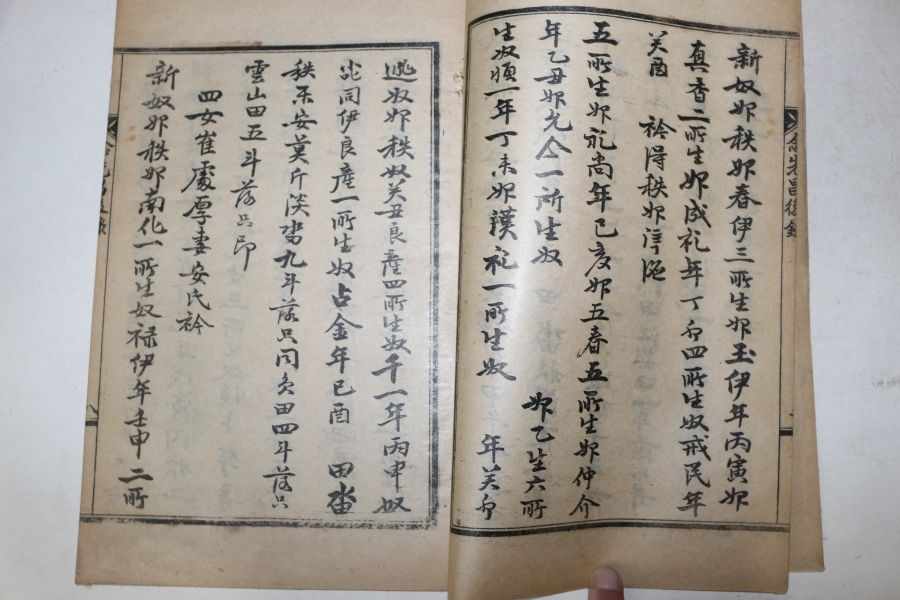 新奴婢秩婢春伊三所生婢玉伊年丙寅婢
真香二所生婢成礼年丁卯四所生奴戒民年
癸酉 衿得秩婢
五所生婢礼尚年己亥婢五春五所生婢仲介
年乙丑婢允今一所生奴 婢乙生六所
生奴順一年丁未婢漢礼一所生奴 年癸卯
逃奴婢秩奴癸丑良産四所生奴千一年丙申奴
同伊良産一所生奴占金年己酉 田畓
秩東安莫斤渓畓九斗落只同員田四斗落只
雲山田五斗落只印
四女崔處厚妻安氏衿
新奴婢秩婢南化一所生奴禄伊年壬申二所